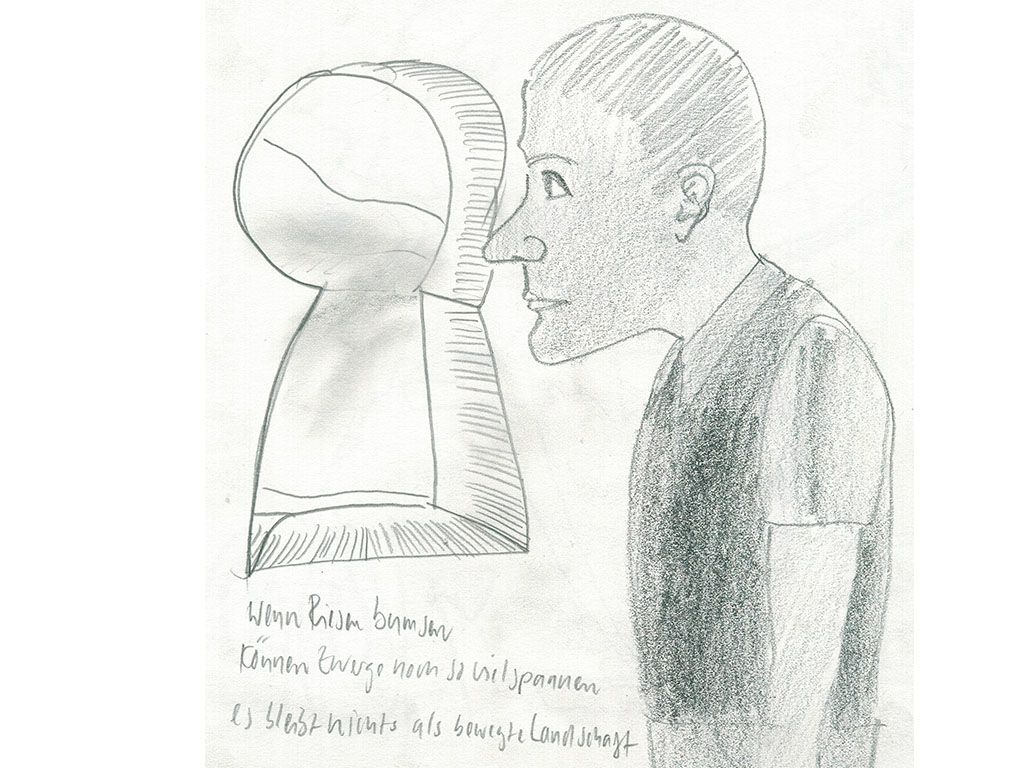 Wenn Riesen bumsen
Können Zwerge noch so viel spannen
es bleibt nichts als bewegte Landschaft